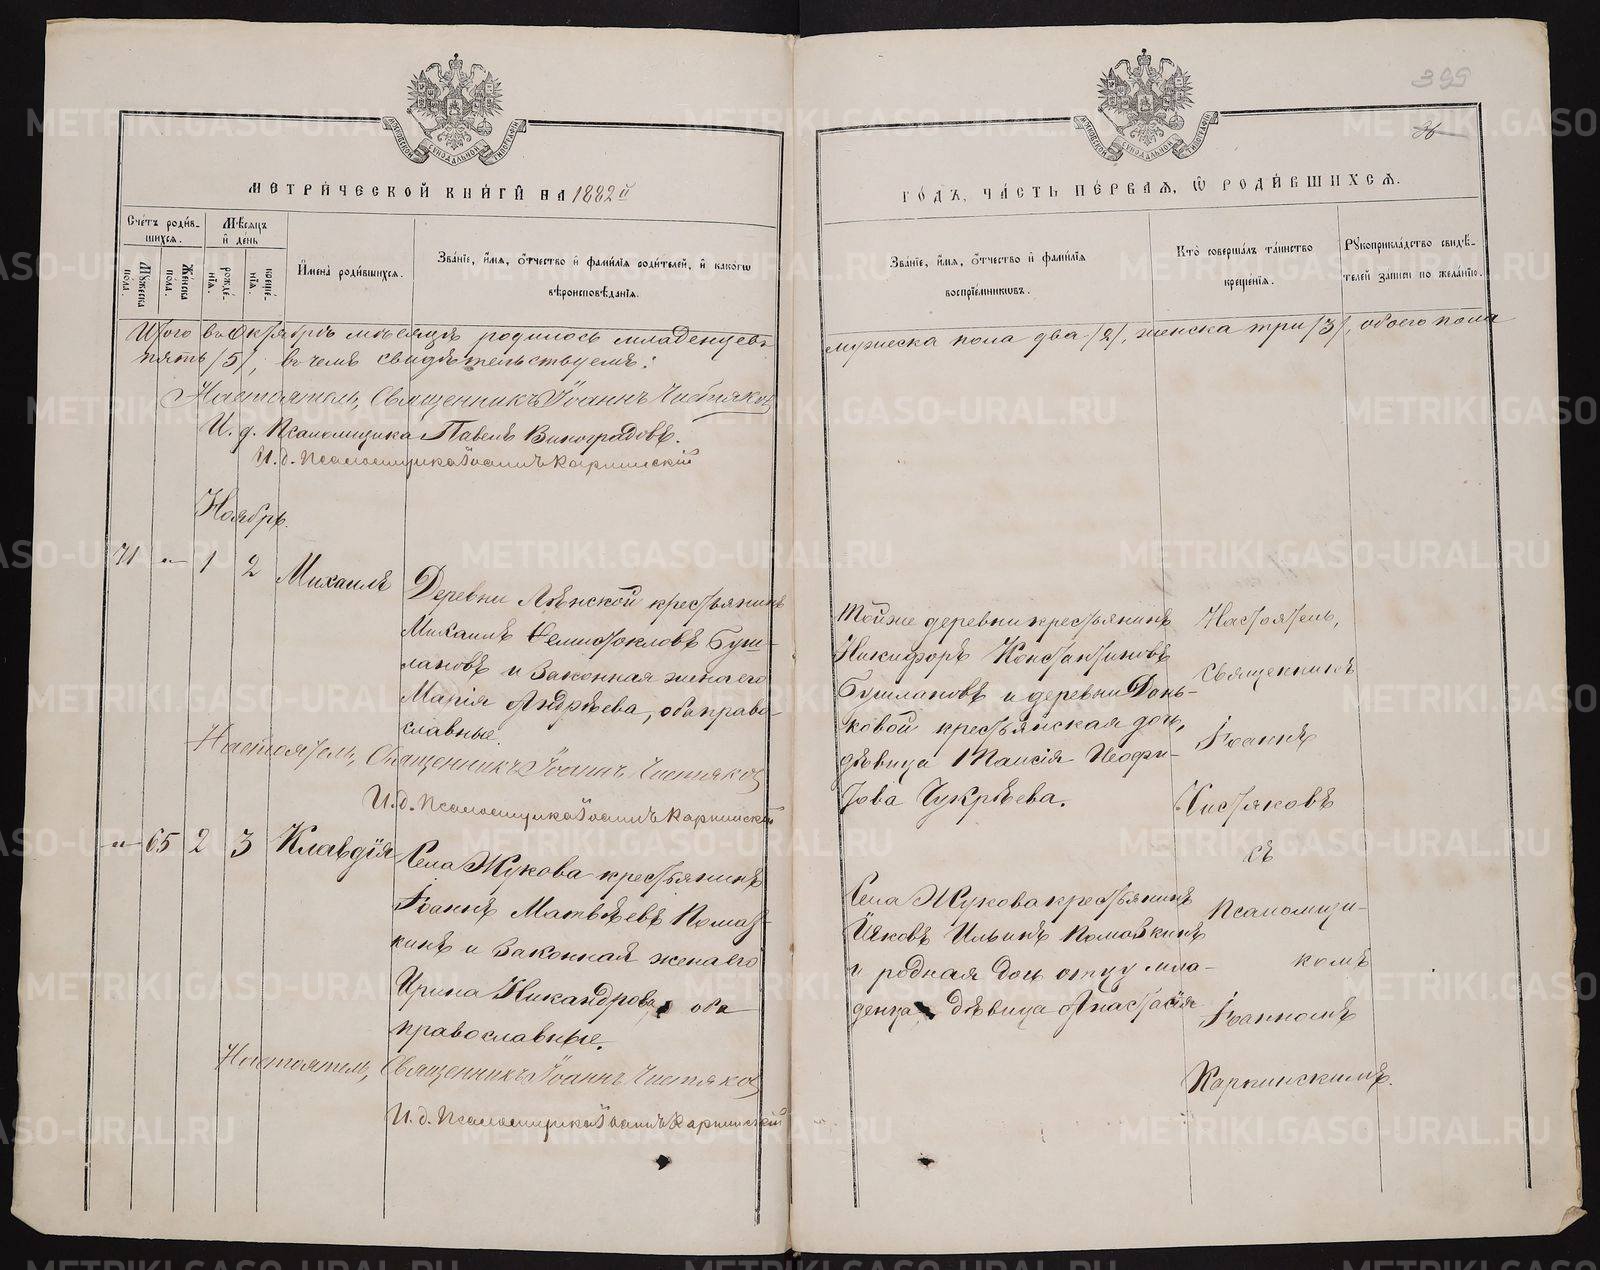 395
36
МЕТРИЧЕСКОЙ КНИГИ НА 1882й
ГОДЪ, ЧАСТЬ ПЕРВАЯ, Ѡ РОДИВШИХСЯ.
Счетъ родившихся.
Мѣсяцъ и день
Имена родившихся.
Званіе, имя, отчество и фамилія родителей, и какогѡ
вѣроисповѣданія.
Мужеска пола.
Женска пола.
рожденія.
крещенія.
Званіе, имя, отчество и фамилія
воспріемниковъ.
Кто совершалъ таинство
крещенія.
Рукоприкладство свидѣтелей записи по желанію.
Итого въ Октябрѣ мѣсяцѣ родилось младенцевъ
мужеска пола два /2/, женска три /3/, обоего пола
пять /5/, въ чемъ свидѣтельствуемъ:
Настоятель, Священникъ Іоаннъ Чистяковъ
И. д. Псаломщика Павелъ Виноградовъ.
И. д. Псаломщика Іоаннъ Карпинскій
Ноябрь.
71 " 1 2 Михаилъ
Деревни Лѣнской крестьянинъ
Михаилъ Ѳемистокловъ Буш-
лановъ и законная жена его
Марія Андрѣева, оба право-
славные.
Тойже деревни крестьянинъ
Никифоръ Константиновъ
Бушлановъ и деревни Донь-
ковой крестьянская дочь,
дѣвица Таисія Неофи-
това Чукрѣева.
Настоятель, Священникъ Іоаннъ Чистяковъ
И. д. Псаломщика Іоаннъ Карпинскій
Настоятель,
Священникъ
Іоаннъ
Чистяковъ
съ
Псаломщи-
комъ
Іоанномъ
Карпинскимъ.
" 65 2 3 Клавдія
Села Жукова крестьянинъ
Іоаннъ Матвѣевъ Помаз-
кинъ и законная жена его
Ирина Никандрова, оба
православные.
Села Жукова крестьянинъ
Іаковъ Ильинъ Помазкинъ
и родная дочь отцу мла-
денца дѣвица Анастасія
Настоятель, Священникъ Іоаннъ Чистяковъ
И. д. Псаломщика Іоаннъ Карпинскій
METRIKI.GASO-URAL.RU